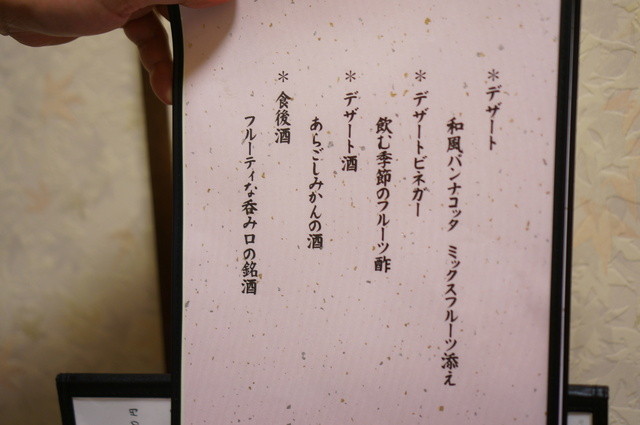 ＊デザート
和風パンナコッタ　ミックスフルーツ添え
＊デザートビネガー
飲む季節のフルーツ酢
＊デザート酒
あらごしみかんの酒
＊食後酒
フルーティな呑み口の銘酒